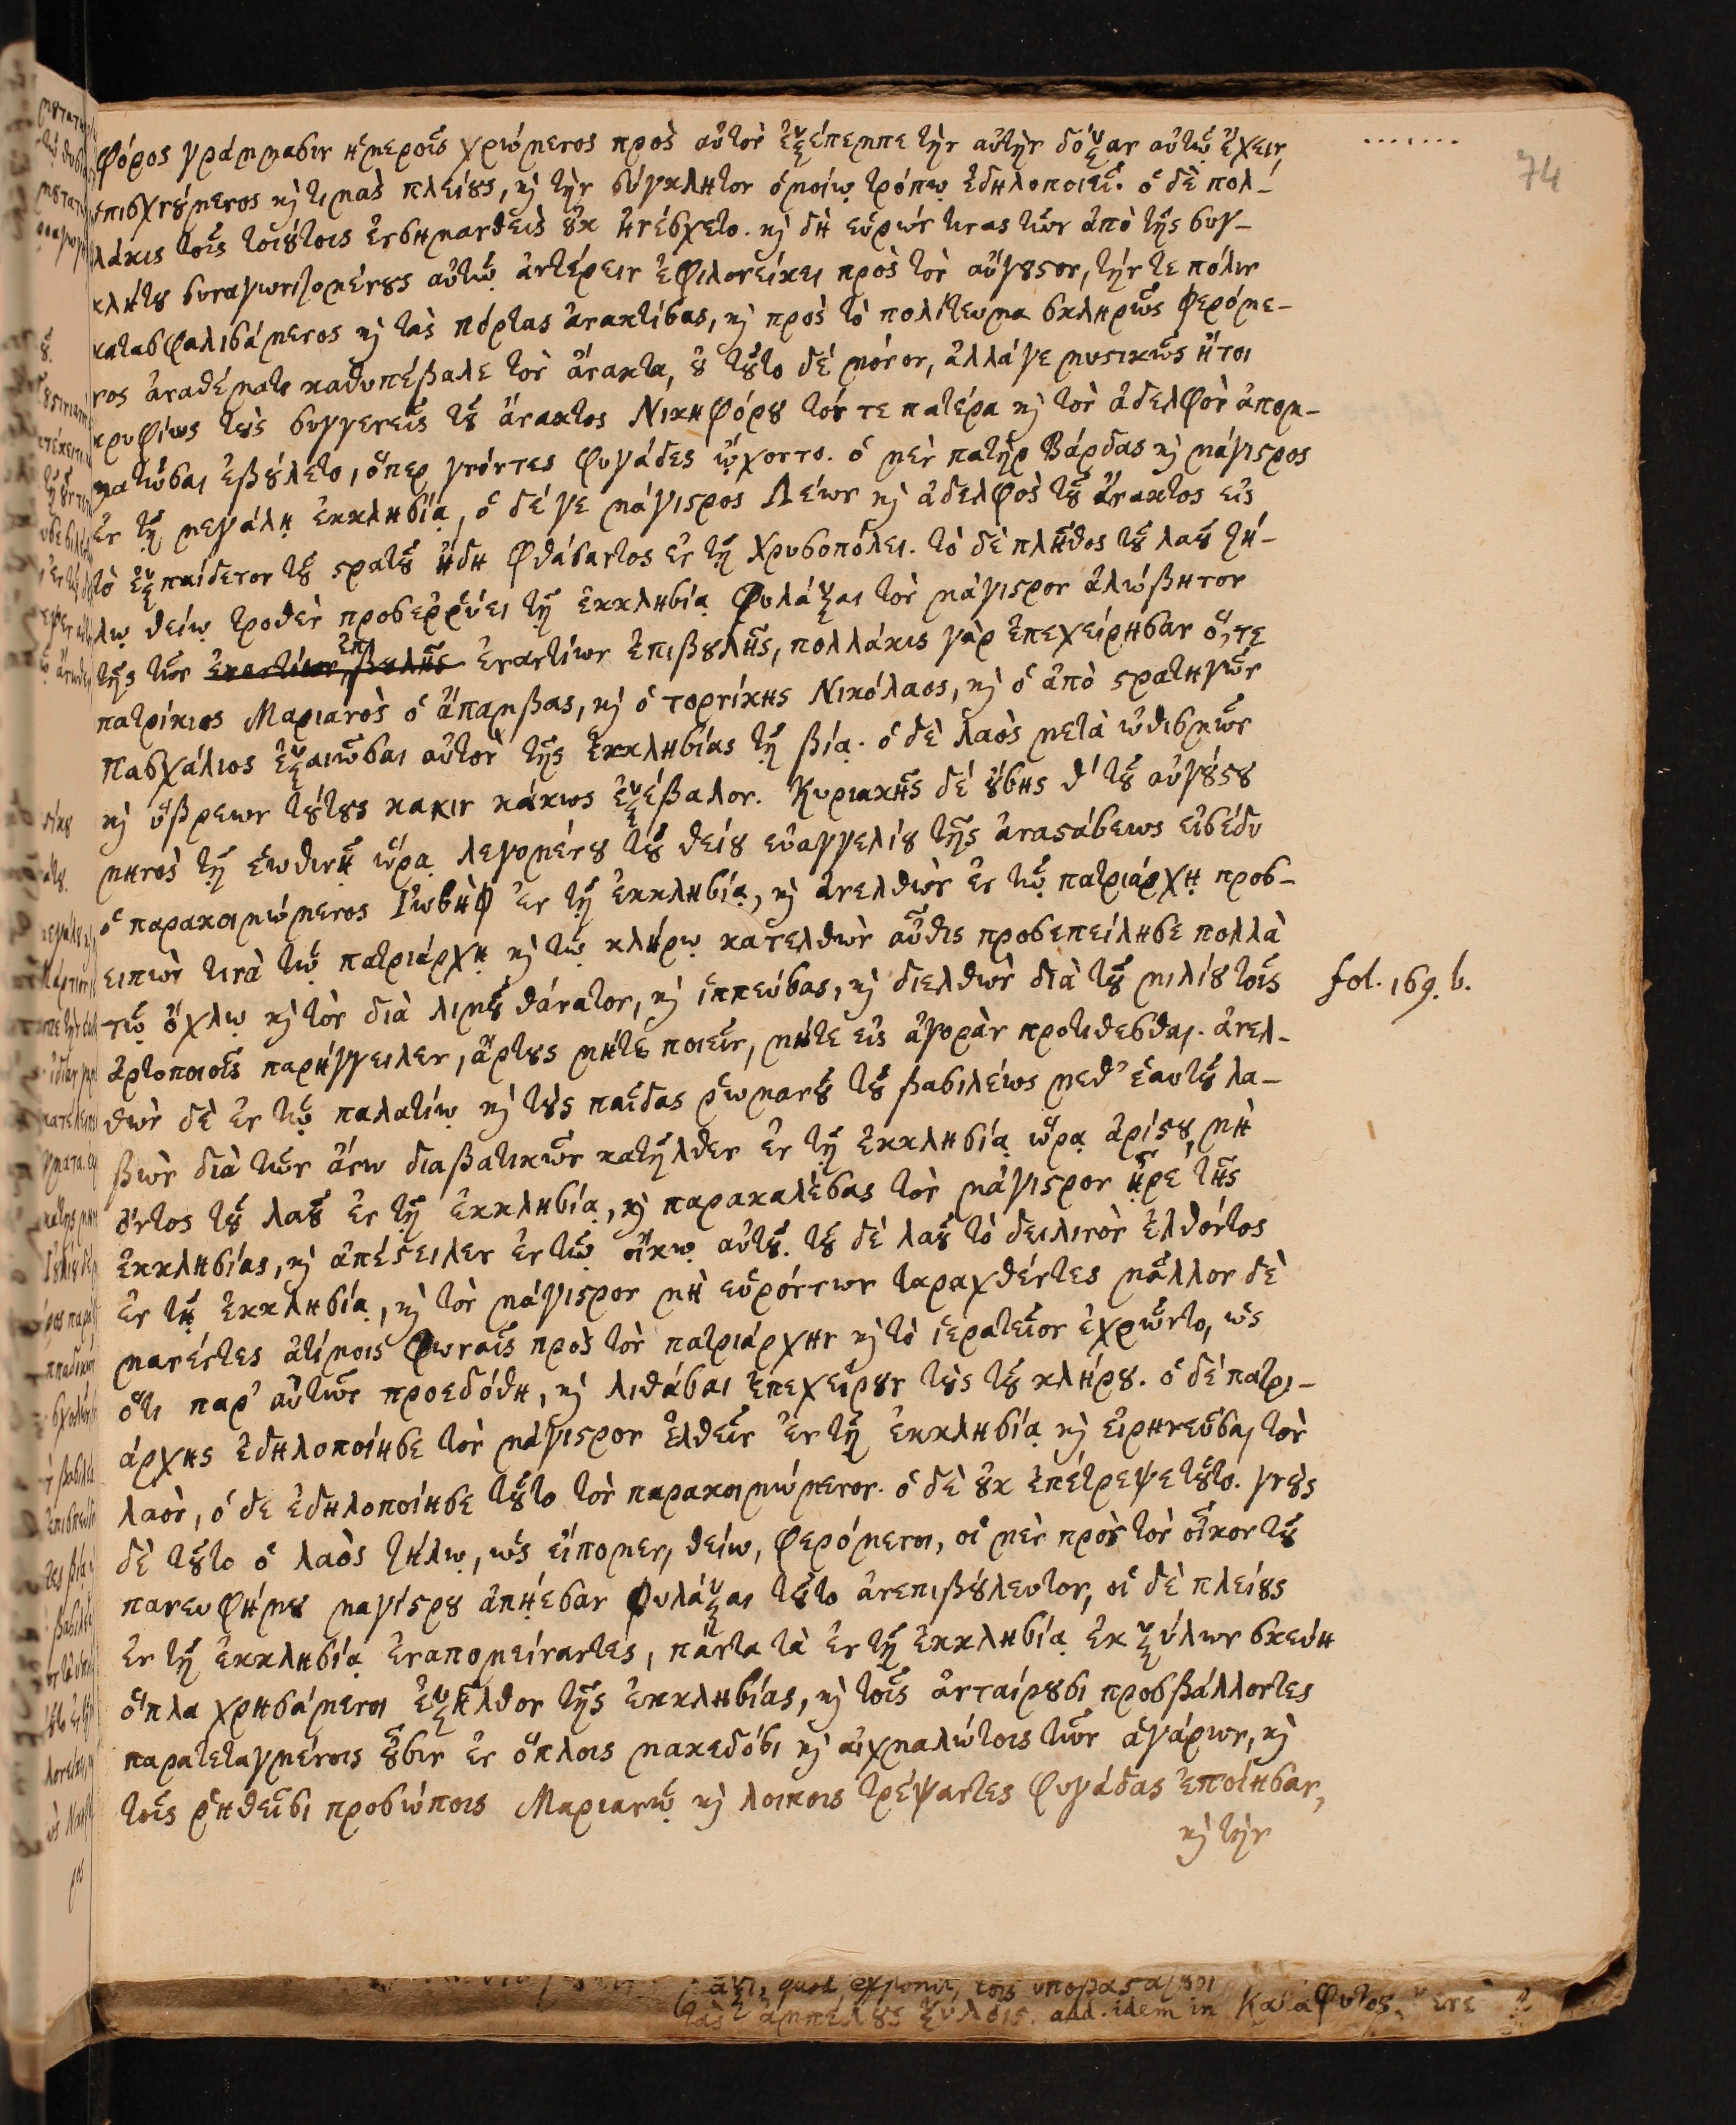 74
φόρος γράμμασιν ἡμεροῖς χρώμενος πρὸς αὐτὸν ἐξέπεμπε τὴν αὐτὴν δόξαν αὐτῷ ἔχειν
ὑπισχνούμενος κὶ τιμὰς πλείους, κὶ τὴν σύγκλητον ὁμοίῳ τρόπῳ ἐδηλοποιεῖ. ὁ δὲ πολ-
λάκις τοῖς τοιούτοις ἐνσημανθεὶς οὐκ ἠνέσχετο. κὶ δὴ εὑρών τινας τῶν ἀπὸ τῆς συγ-
κλήτου συναγωνιζομένους αὐτῷ ἀντέρειν ἐφιλονείκει πρὸς τὸν αὔγουστον, τήν τε πόλιν
κατασφαλισάμενος κὶ τὰς πόρτας ἀνακτίσας, κὶ πρὸς τὸ πολίτευμα σκληρῶς φερόμε-
νος ἀναθέματι καθυπέβαλε τὸν ἄνακτα, οὐ τοῦτο δέ μόνον, ἀλλάγε μυστικῶς ἤτοι
κρυφίως τοὺς συγγενεῖς τοῦ ἄνακτος Νικηφόρου τόν τε πατέρα κὶ τὸν ἀδελφὸν ἀπομ-
ματῶσαι ἐβούλετο, ὅπερ γνόντες φυγάδες ᾤχοντο. ὁ μὲν πατὴρ Βάρδας κὶ μάγιστρος
ἐν τῇ μεγάλῃ ἐκκλησίᾳ, ὁ δέ γε μάγιστρος Λέων κὶ ἀδελφὸς τοῦ ἄνακτος εἰς
τὸ ἐξπαίδετον τοῦ στρατοῦ ἤδη φθάσαντος ἐν τῇ Χρυσοπόλει. τὸ δὲ πλῆθος τοῦ λαοῦ ζή-
λῳ θείῳ τροθὲν προσερρύει τῇ ἐκκλησίᾳ φυλάξαι τὸν μάγιστρον ἀλώβητον
τῆς τῶν ἐναντίων ἐπιβουλῆς ἐναντίων ἐπιβουλῆς, πολλάκις γὰρ ἐπεχείρησαν ὅ,τε
πατρίκιος Μαριανὸς ὁ ἄπαμβας, κὶ ὁ τορνίκης Νικόλαος, κὶ ὁ ἀπὸ στρατηγῶν
πασχάλιος ἐξαιῶσαι αὐτὸν τῆς ἐκκλησίας τῇ βίᾳ. ὁ δὲ λαὸς μετὰ ὠθισμῶν
κὶ ὕβρεων τούτους κακιν κάκως ἐξέβαλον. Κυριακῆς δέ οὔσης θ' τοῦ αὐγούστου
μηνὸς τῇ ἑωθινῇ ὥρᾳ λεγομένου τοῦ θείου εὐαγγελίου τῆς ἀναστάσεως εἰσέδυ
ὁ παρακοιμώμενος Ἰωσὴφ ἐν τῇ ἐκκλησίᾳ, κὶ ἀνελθὼν ἐν τῷ πατριάρχῃ προσ-
ειπὼν τινὰ τῷ πατριάρχῃ κὶ τῷ κλήρῳ κατελθὼν αὖθις προσεπείλησε πολλὰ
τῷ ὄχλῳ κὶ τὸν διὰ λιμοῦ θάνατον, κὶ ἱππεύσας, κὶ διελθὼν διὰ τοῦ μιλίου τοῖς
fol. 169. b.
ἀρτοποιοῖς παρήγγειλεν, ἄρτους μήτε ποιεῖν, μήτε εἰς ἀγορὰν προτιθεσθαι. ἀνελ-
θὼν δὲ ἐν τῷ παλατίῳ κὶ τοὺς παῖδας ῥωμανοῦ τοῦ βασιλέως μεθ' ἑαυτοῦ λα-
βὼν διὰ τῶν ἄνω διαβατικῶν κατῆλθεν ἐν τῇ ἐκκλησίᾳ ὥρᾳ ἀρίστου, μὴ
ὄντος τοῦ λαοῦ ἐν τῇ ἐκκλησίᾳ, κὶ παρακαλέσας τὸν μάγιστρον ᾖρε τῆς
ἐκκλησίας, κὶ ἀπέστειλεν ἐν τῷ οἴκῳ αὐτοῦ. τοῦ δὲ λαοῦ τὸ δειλινὸν ἐλθόντος
ἐν τῇ ἐκκλησίᾳ, κὶ τὸν μάγιστρον μὴ εὑρόντων ταραχθέντες μᾶλλον δὲ
μανέντες ἀτίμοις φωναῖς πρὸς τὸν πατριάρχην κὶ τὸ ἱερατεῖον ἐχρῶντο, ὡς
ὅτι παρ' αὐτῶν προεδόθη, κὶ λιθάσαι ἐπεχείρουν τοὺς τοῦ κλήρου. ὁ δὲ πατρι-
άρχης ἐδηλοποίησε τὸν μάγιστρον ἐλθεῖν ἐν τῇ ἐκκλησίᾳ κὶ εἰρηνεῦσαι τὸν
λαὸν, ὁ δε ἐδηλοποίησε τοῦτο τὸν παρακοιμώμενον. ὁ δὲ οὐκ ἐπέτρεψε τοῦτο. γνοὺς
δὲ τοῦτο ὁ λαὸς ζήλῳ, ὡς εἴπομεν, θείω, φερόμενοι, οἱ μὲν πρὸς τὸν οἶκον τοῦ
πανευφήμου μαγίστρου ἀπῄεσαν φυλάξαι τοῦτο ἀνεπιβούλευτον, οἱ δὲ πλείους
ἐν τῇ ἐκκλησίᾳ ἐναπομείναντες, πάντα τὰ ἐν τῇ ἐκκλησίᾳ ἐκ ξύλων σκεύη
ὅπλα χρησάμενοι ἐξῆλθον τῆς ἐκκλησίας, κὶ τοῖς ἀνταίρουσι προσβάλλοντες
παρατεταγμένοις οὖσιν ἐν ὅπλοις μακεδόσι κὶ αἰχμαλώτοις τῶν ἀγάρων, κὶ
τοῖς ῥηθεῖσι προσώποις Μαριανῷ κὶ λοιποις τρέψαντες φυγάδας ἐποίησαν,
κὶ τὴν
τὰς ἀμπέλους ξύλοις. add. idem in Κατάφυτος.